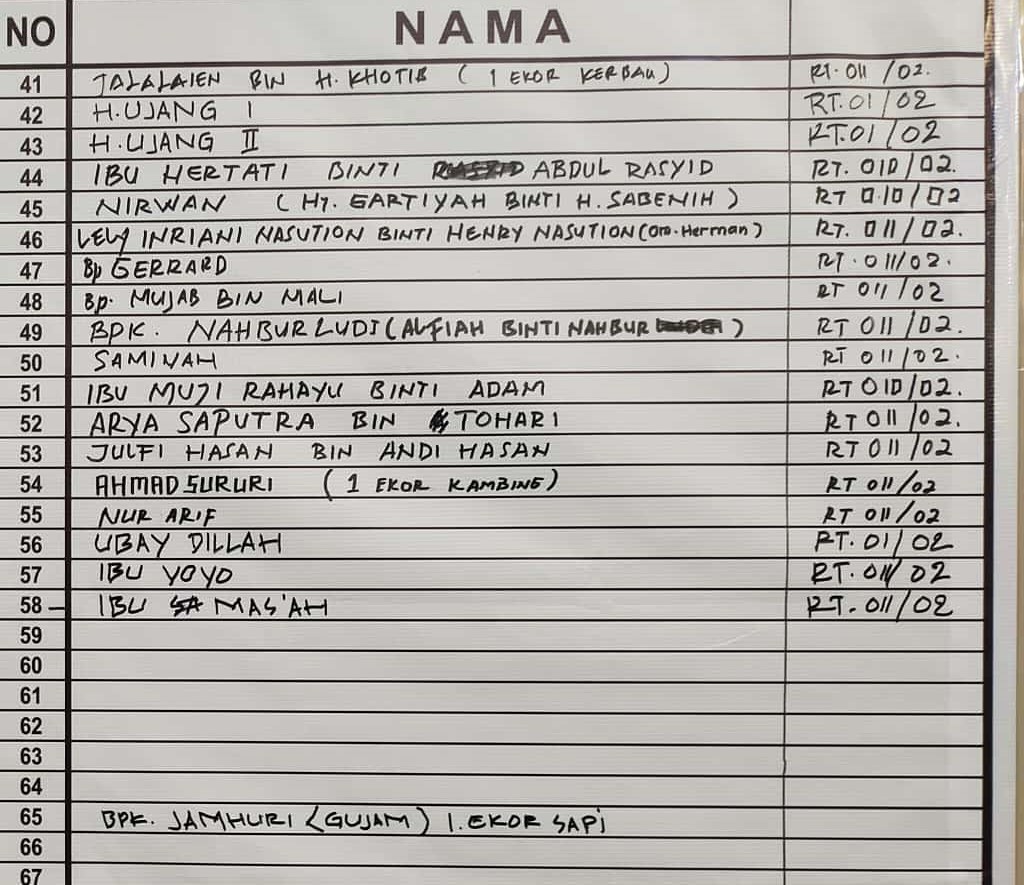 NO NAMA
41 JALALAIEN BIN H. KHOTIB ( 1 EKOR KERBAU ) RT. 011 /02.
42 H. UJANG I RT. 01/02
43 H. UJANG II RT.01/02
44 IBU HERTATI BINTI ABDUL RASYID RT. 010/02.
45 NIRWAN ( Hj. GARTIYAH BINTI H. SABENIH ) RT 010/02
46 LELY INRIANI NASUTION BINTI HENRY NASUTION (Om. Herman) RT. 011/02.
47 Bp GERRARD RT. 011/02.
48 Bp. MUJAB BIN MALI RT 011/02
49 BPK. NAHBUR LUDI (ALFIAH BINTI NAHBUR ) RT 011/02.
50 SAMINAH RT 011/02.
51 IBU MUJI RAHAYU BINTI ADAM RT 010/02.
52 ARYA SAPUTRA BIN TOHARI RT 011/02.
53 JULFI HASAN BIN ANDI HASAN RT 011/02
54 AHMAD SURURI ( 1 EKOR KAMBING ) RT 011/02
55 NUR ARIF RT 011/02
56 UBAY DILLAH RT. 01/02
57 IBU YOYO RT. 011/02
58 – IBU MAS'AH RT. 011/02
59
60
61
62
63
64
65 BPK. JAMHURI (GUJAM) 1. EKOR SAPi
66
67